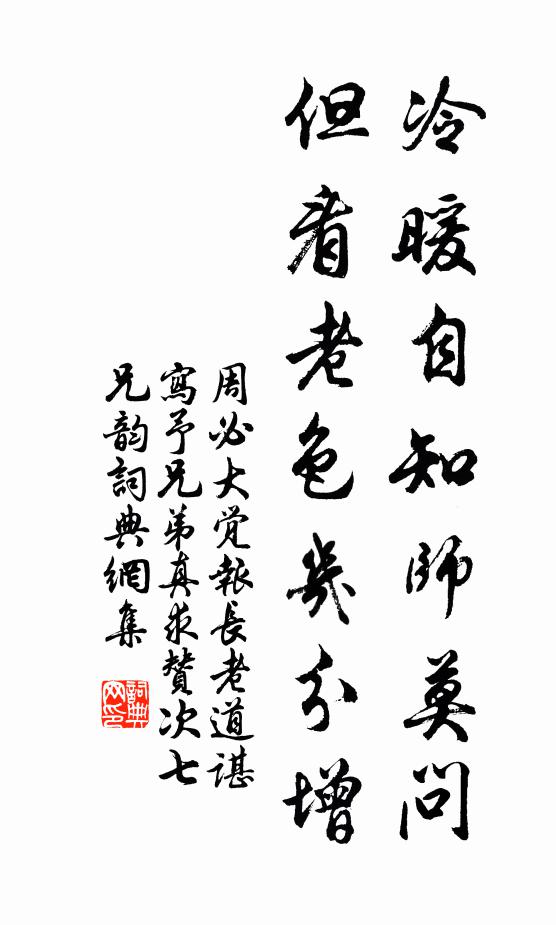 冷暖自知師莫問
但看老色幾分增
周必大覚報長老道諶
寫予兄弟真求贊次七
兄韵詞典網集
詞典
网印